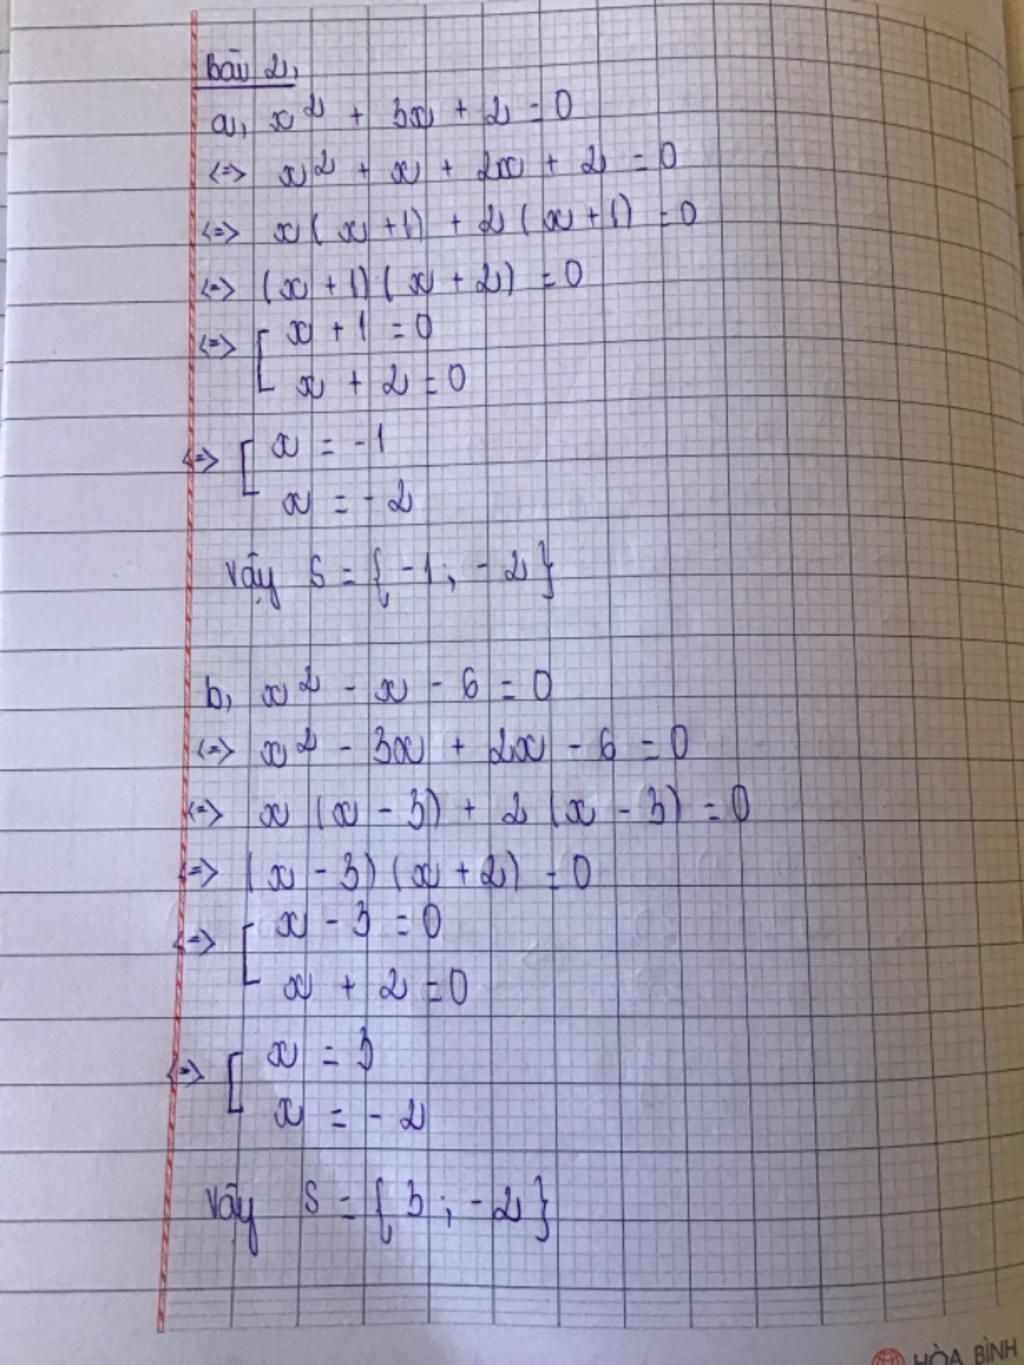 bài 2,
a, x² + 3x + 2 = 0
<=> x² + x + 2x + 2 = 0
<=> x(x+1) + 2(x+1) = 0
<=> (x+1)(x+2) = 0
<=> [ x + 1 = 0
x + 2 = 0
<=> [ x = -1
x = -2
Vậy S = {-1; -2}
b, x² - x - 6 = 0
<=> x² - 3x + 2x - 6 = 0
<=> x(x - 3) + 2(x - 3) = 0
<=> (x - 3)(x + 2) = 0
<=> [ x - 3 = 0
x + 2 = 0
<=> [ x = 3
x = -2
Vậy S = {3; -2}
HÒA BÌNH